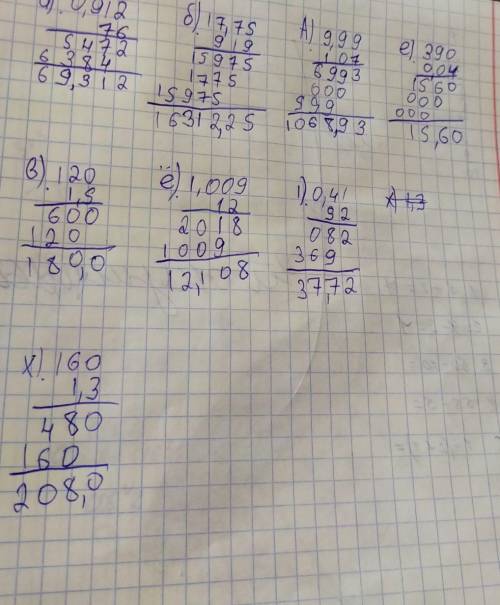 0,912
76
5472
6384
69,312
б). 17,75
919
15975
1775
15975
16312,25
А) 9,99
107
6993
000
999
1068,93
е). 390
0,04
1560
000
000
15,60
в). 120
1,5
600
120
180,0
ё). 1,009
12
2018
1009
12,108
0,41
92
082
369
37,72
х). 160
1,3
480
160
208,0